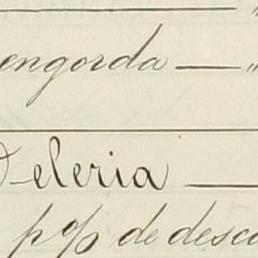 engorda — "
Deleria —
p% de desc